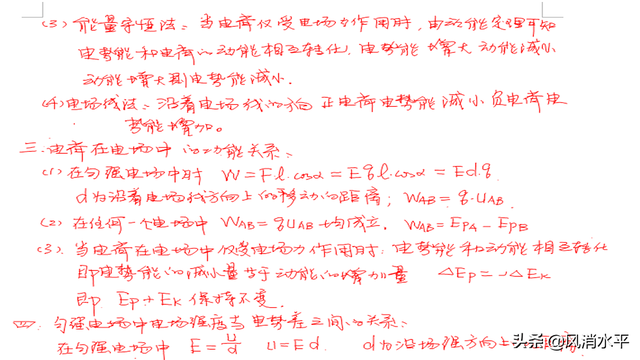 (3) 能量守恒法：当电荷仅受电场力作用时，由动能定理可知
电势能和电荷的动能相互转化，电势能增大动能减小
动能增大则电势能减小.
(4) 电场线法：沿着电场线的方向正电荷电势能减小负电荷电
势能增加。
三. 电荷在电场中的功能关系：
(1) 在匀强电场中时 W=Fl.cosα=Eql.cosα=Ed.q.
d为沿着电场线方向上的移动的距离； WAB=q.UAB
(2) 在任何一个电场中 WAB=qUAB 均成立. WAB=EPA-EPB
(3). 当电荷在电场中仅受电场力作用时，电势能和动能相互转化
即电势能的减小量等于动能的增加量 △Ep=-△Ek
即 Ep+Ek 保持不变.
四. 匀强电场中电场强度与电势差之间的关系：
在匀强电场中 E=U/d U=Ed. d为沿场强方向上
头条@风消水平